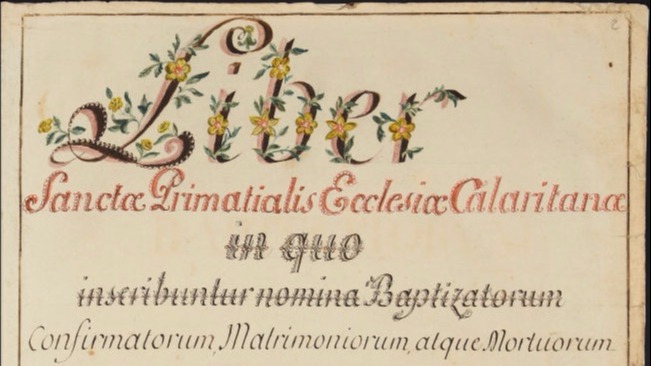 Liber
Sanctæ Primatialis Ecclesiæ Calaritanæ
in quo
inscribuntur nomina Baptizatorum
Confirmatorum, Matrimoniorum, atque Mortuorum